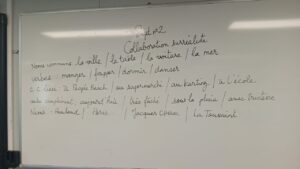 n°2
Collaboration surréaliste
Noms communs : la ville / la table / la voiture / la mer
verbes : manger / frapper / dormir / danser
C.C. lieu : à People Beach / au supermarché / au karting / à l'école
autre complément : aujourd'hui / très fâché / sous la pluie / avec tristesse
Noms : Rimbaud / Paris / Jacques Chirac / La Toussaint